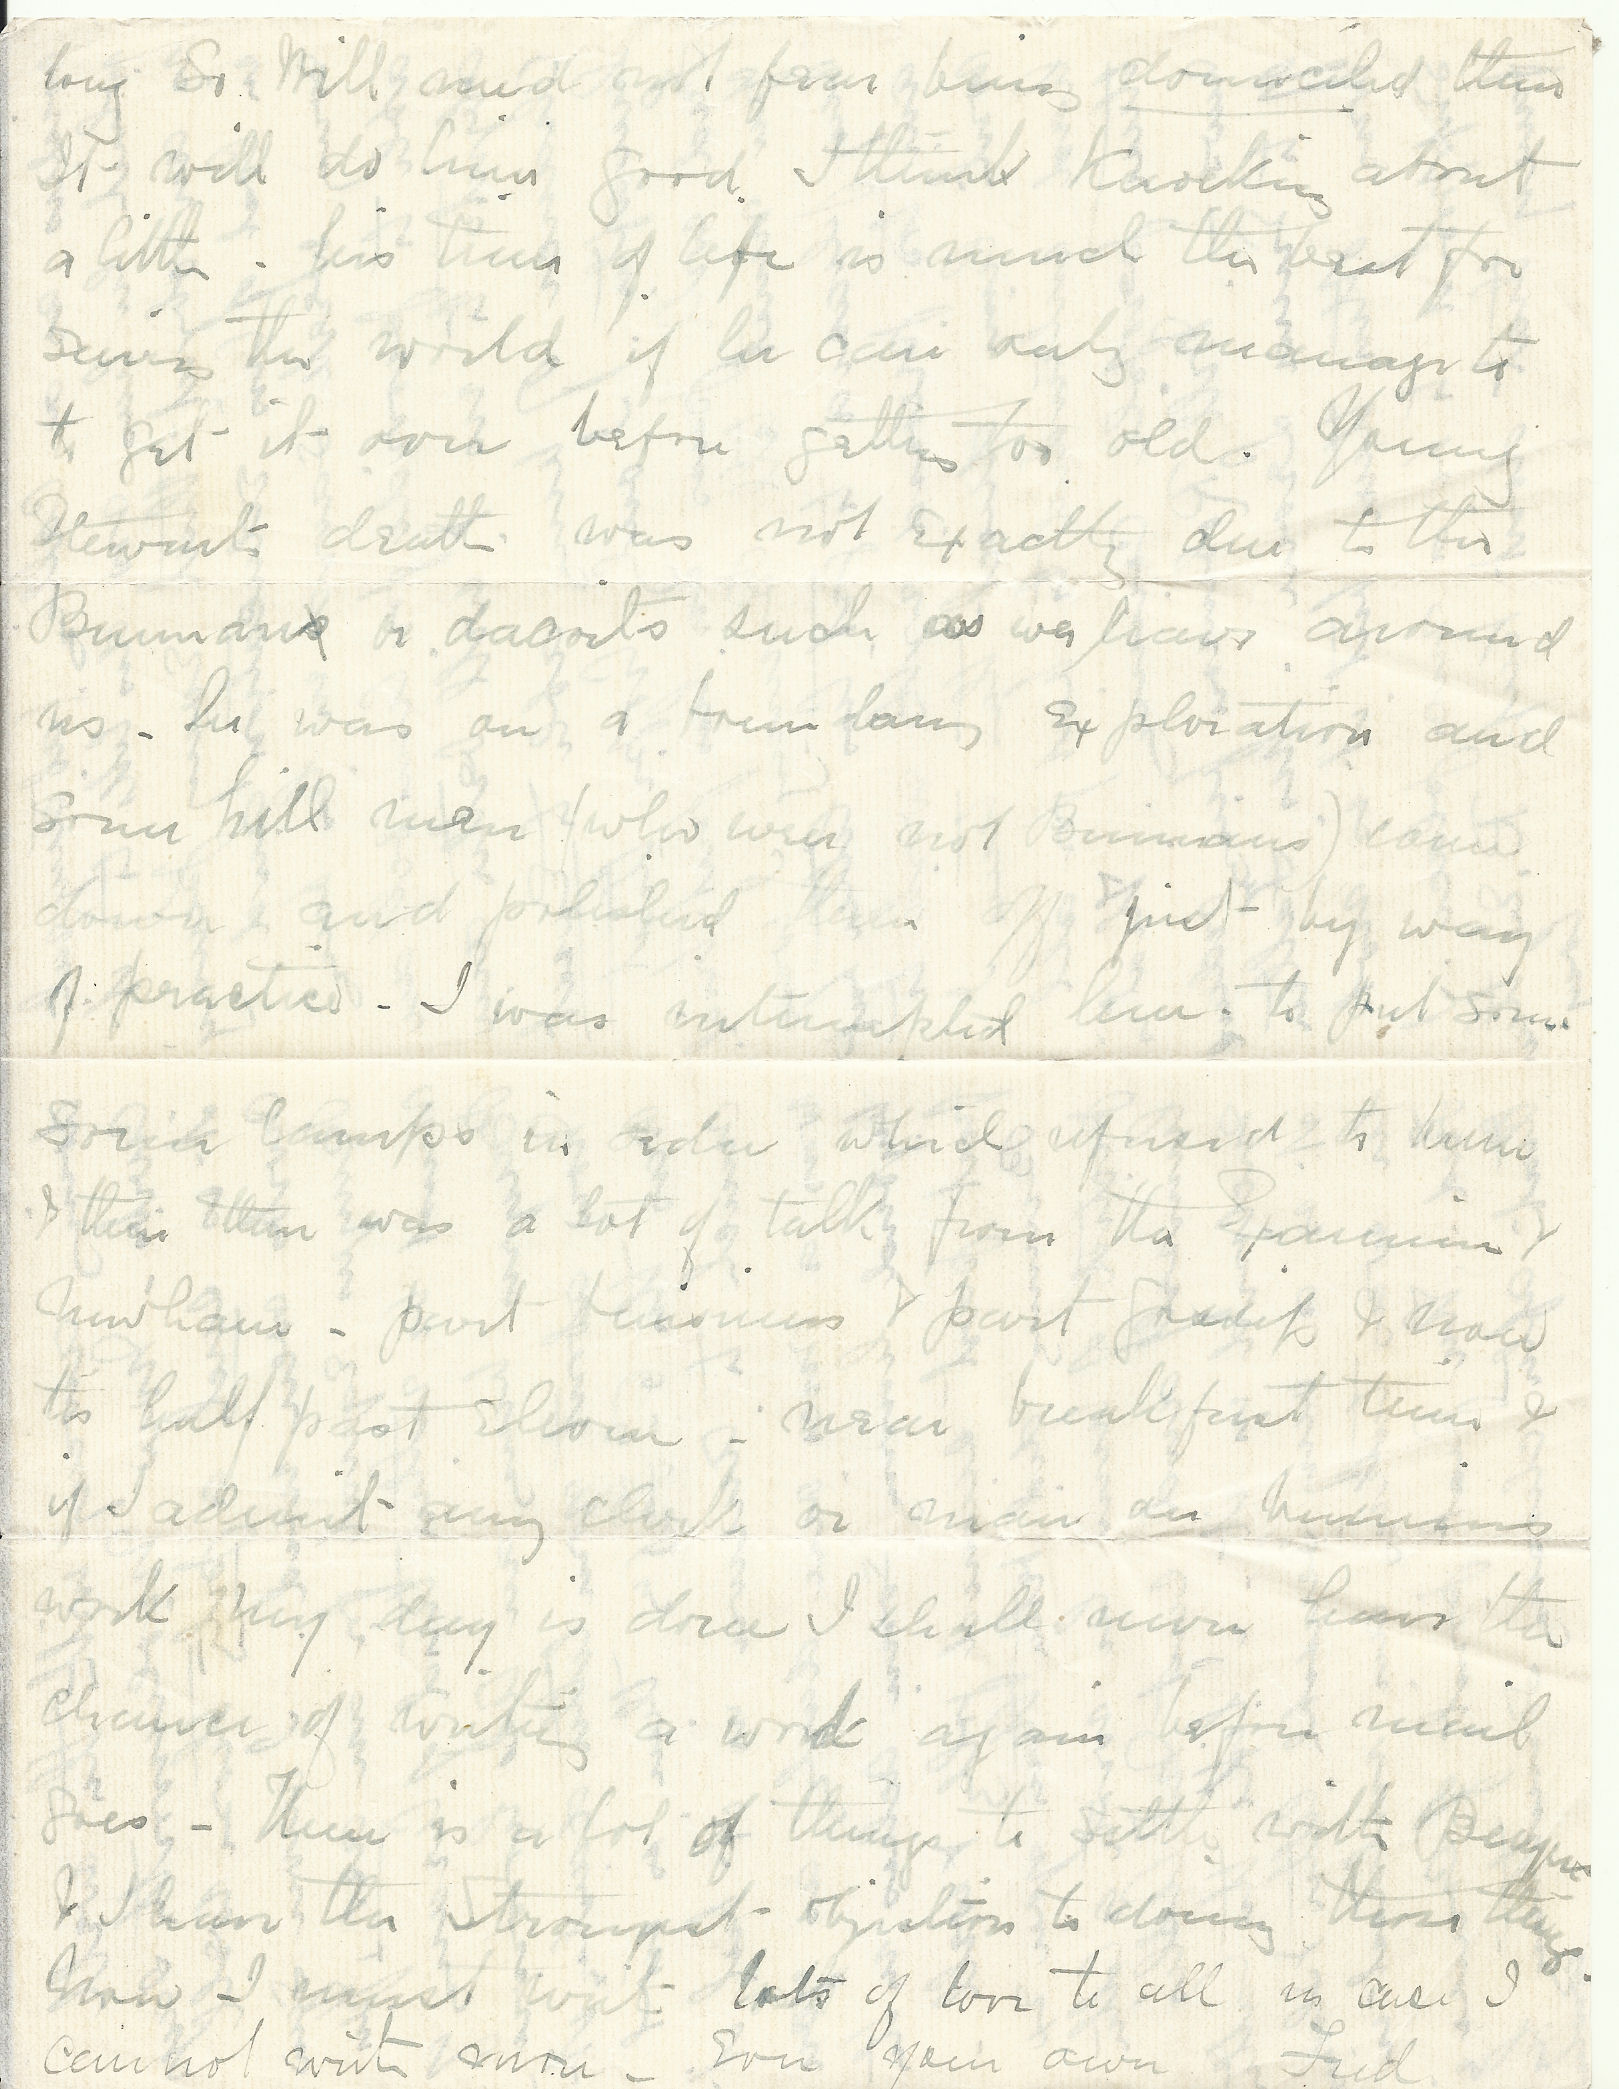 long So Will need not fear being domiciled there
It will do him good I think Knocking about
a little - his time of life is much the best for
seeing the world if he can only manage to
to get it over before getting too old. Young
Stewart's death was not exactly due to the
Burmans or dacoits such as we have around
us - he was on a boundary exploration and
some hill men (who were not Burmans) came
down and polished them off just by way
of practice - I was interrupted here to put some
some lamps in order which refused to burn
& then there was a lot of talk from the Examiner &
Newham - part business & part gossip & now
tis half past eleven - near breakfast time &
if I admit any clerk or man on business
work my day is done I shall never have the
chance of writing a word again before mail
goes - There is a lot of things to settle with
& I have the strongest objection to doing those things.
Now I must wait lots of love to all in case I
cannot write more - Ever your own Fred